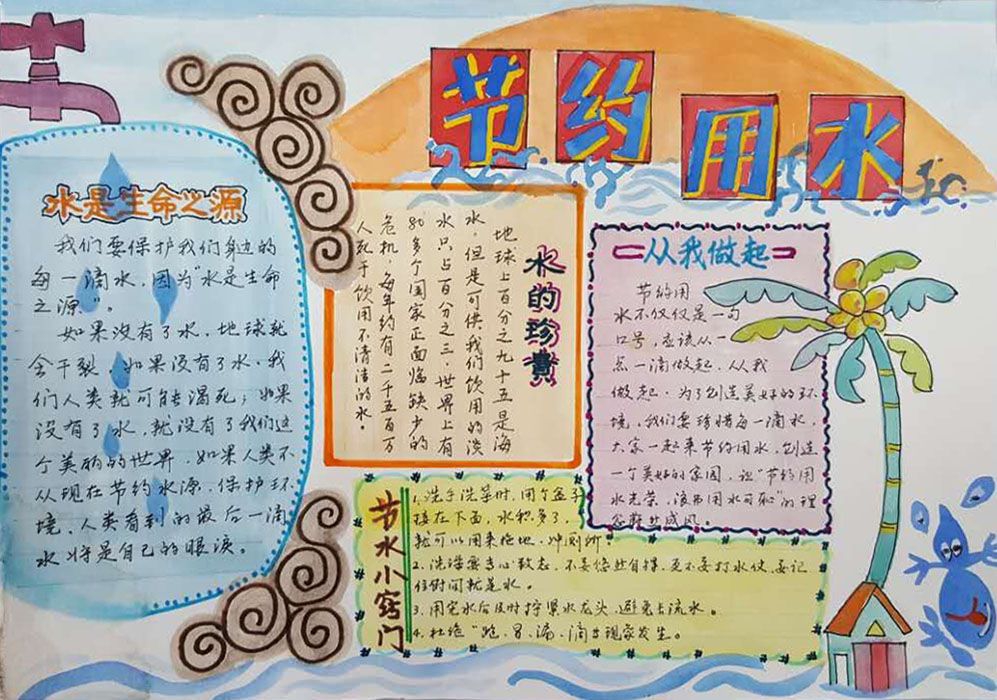 节约用水
水是生命之源
我们要保护我们身边的
每一滴水,因为"水是生命
之源"。
如果没有了水,地球就
会干裂,如果没有了水,我
们人类就可能渴死;如果
没有了水,就没有了我们这
个美丽的世界,如果人类不
从现在节约水源,保护环
境,人类看到的最后一滴
水将是自己的眼泪。
水的珍贵
地球上百分之九十五是海
水,但是可供我们饮用的淡
水只占百分之三,世界上有
80多个国家正面临缺少的
危机,每年约有二千五百万
人死于饮用不清洁的水。
从我做起
节约用
水不仅仅是一句
口号,应该从一
点一滴做起,从我
做起,为了创造美好的环
境,我们要珍惜每一滴水,
大家一起来节约用水,创造
一个美好的家园,让"节约用
水光荣,浪费用水可耻"的理
念蔚然成风。
节水小窍门
1.洗手洗菜时,用个盆子
接在下面,水积多了,
就可以用来拖地,冲厕所。
2.洗澡要专心致志,不要悠然自得,更不要打水仗,要记
住时间就是水。
3.用完水后及时拧紧水龙头,避免长流水。
4.杜绝"跑、冒、漏、滴"等现象发生。